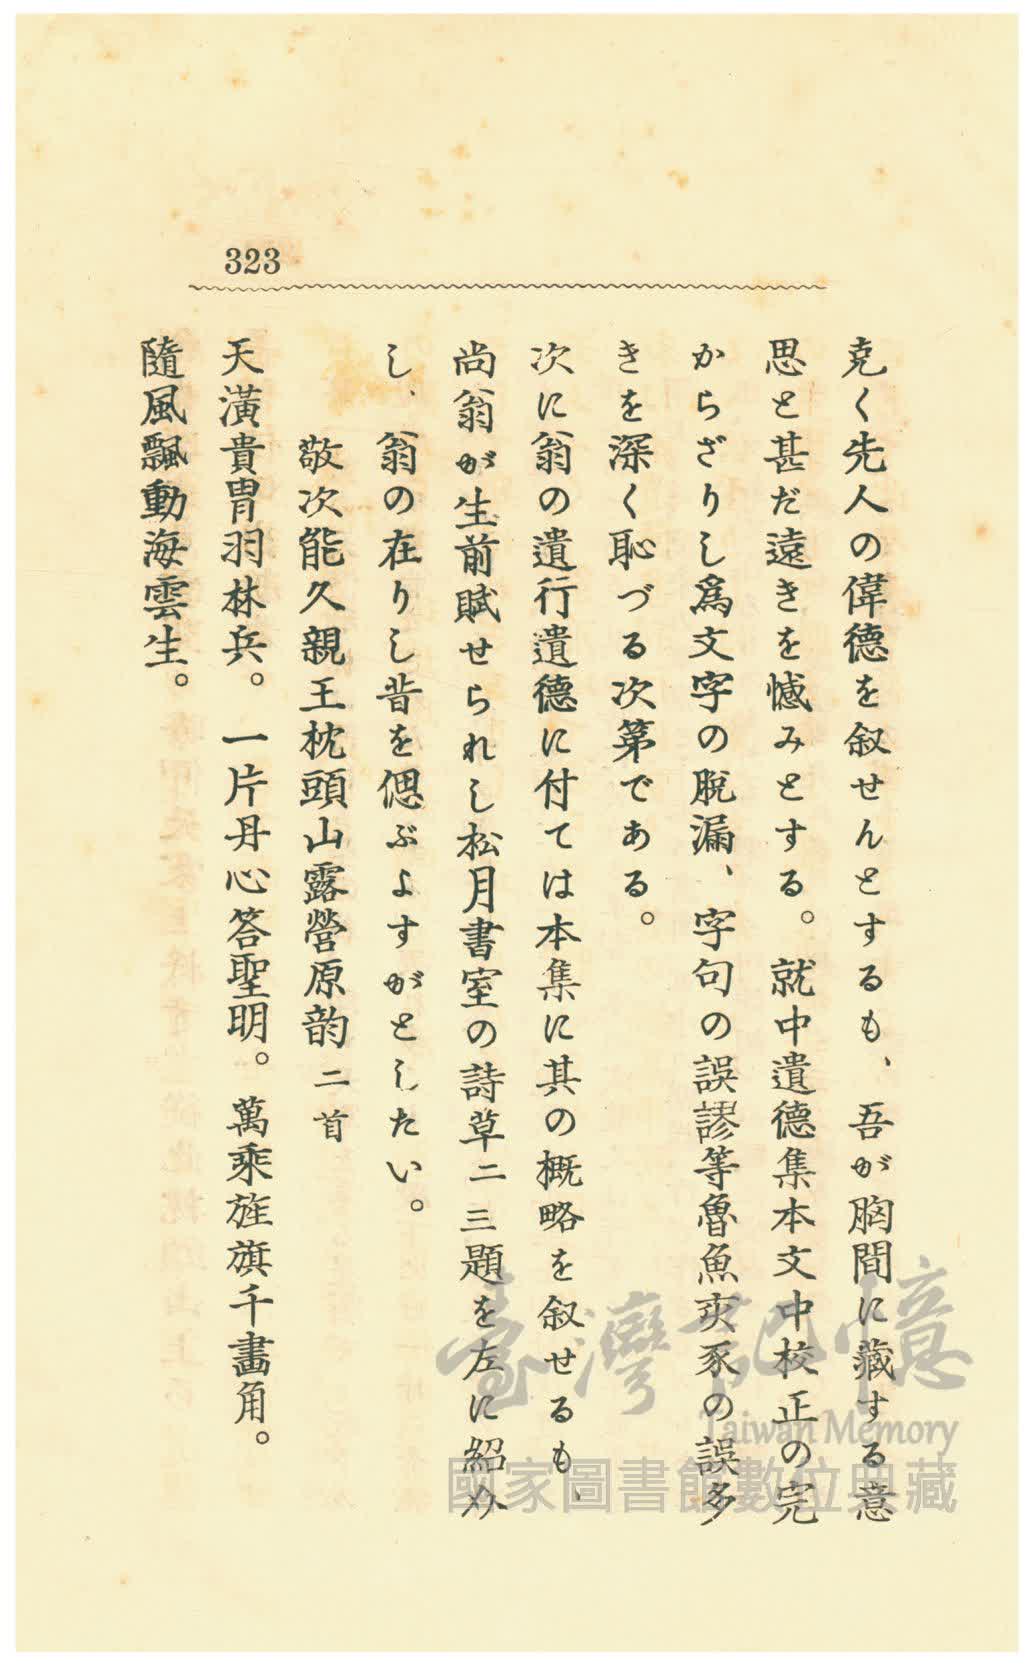 323
克く先人の偉德を叙せんとするも、吾が胸間に藏する意
思と甚だ遠きを憾みとする。就中遺德集本文中校正の完
からざりし爲文字の脫漏、字句の誤謬等魯魚亥豕の誤多
きを深く恥づる次第である。
次に翁の遺行遺德に付ては本集に其の槪略を叙せるも、
尚翁が生前賦せられし松月書室の詩草二三題を左に紹介
し、翁の在りし昔を偲ぶよすがとしたい。
敬次能久親王枕頭山露營原韵 二首
天潢貴胄羽林兵。一片丹心答聖明。萬乘旌旗千畫角。
隨風飄動海雲生。
臺灣記憶
Taiwan Memory
國家圖書館數位典藏